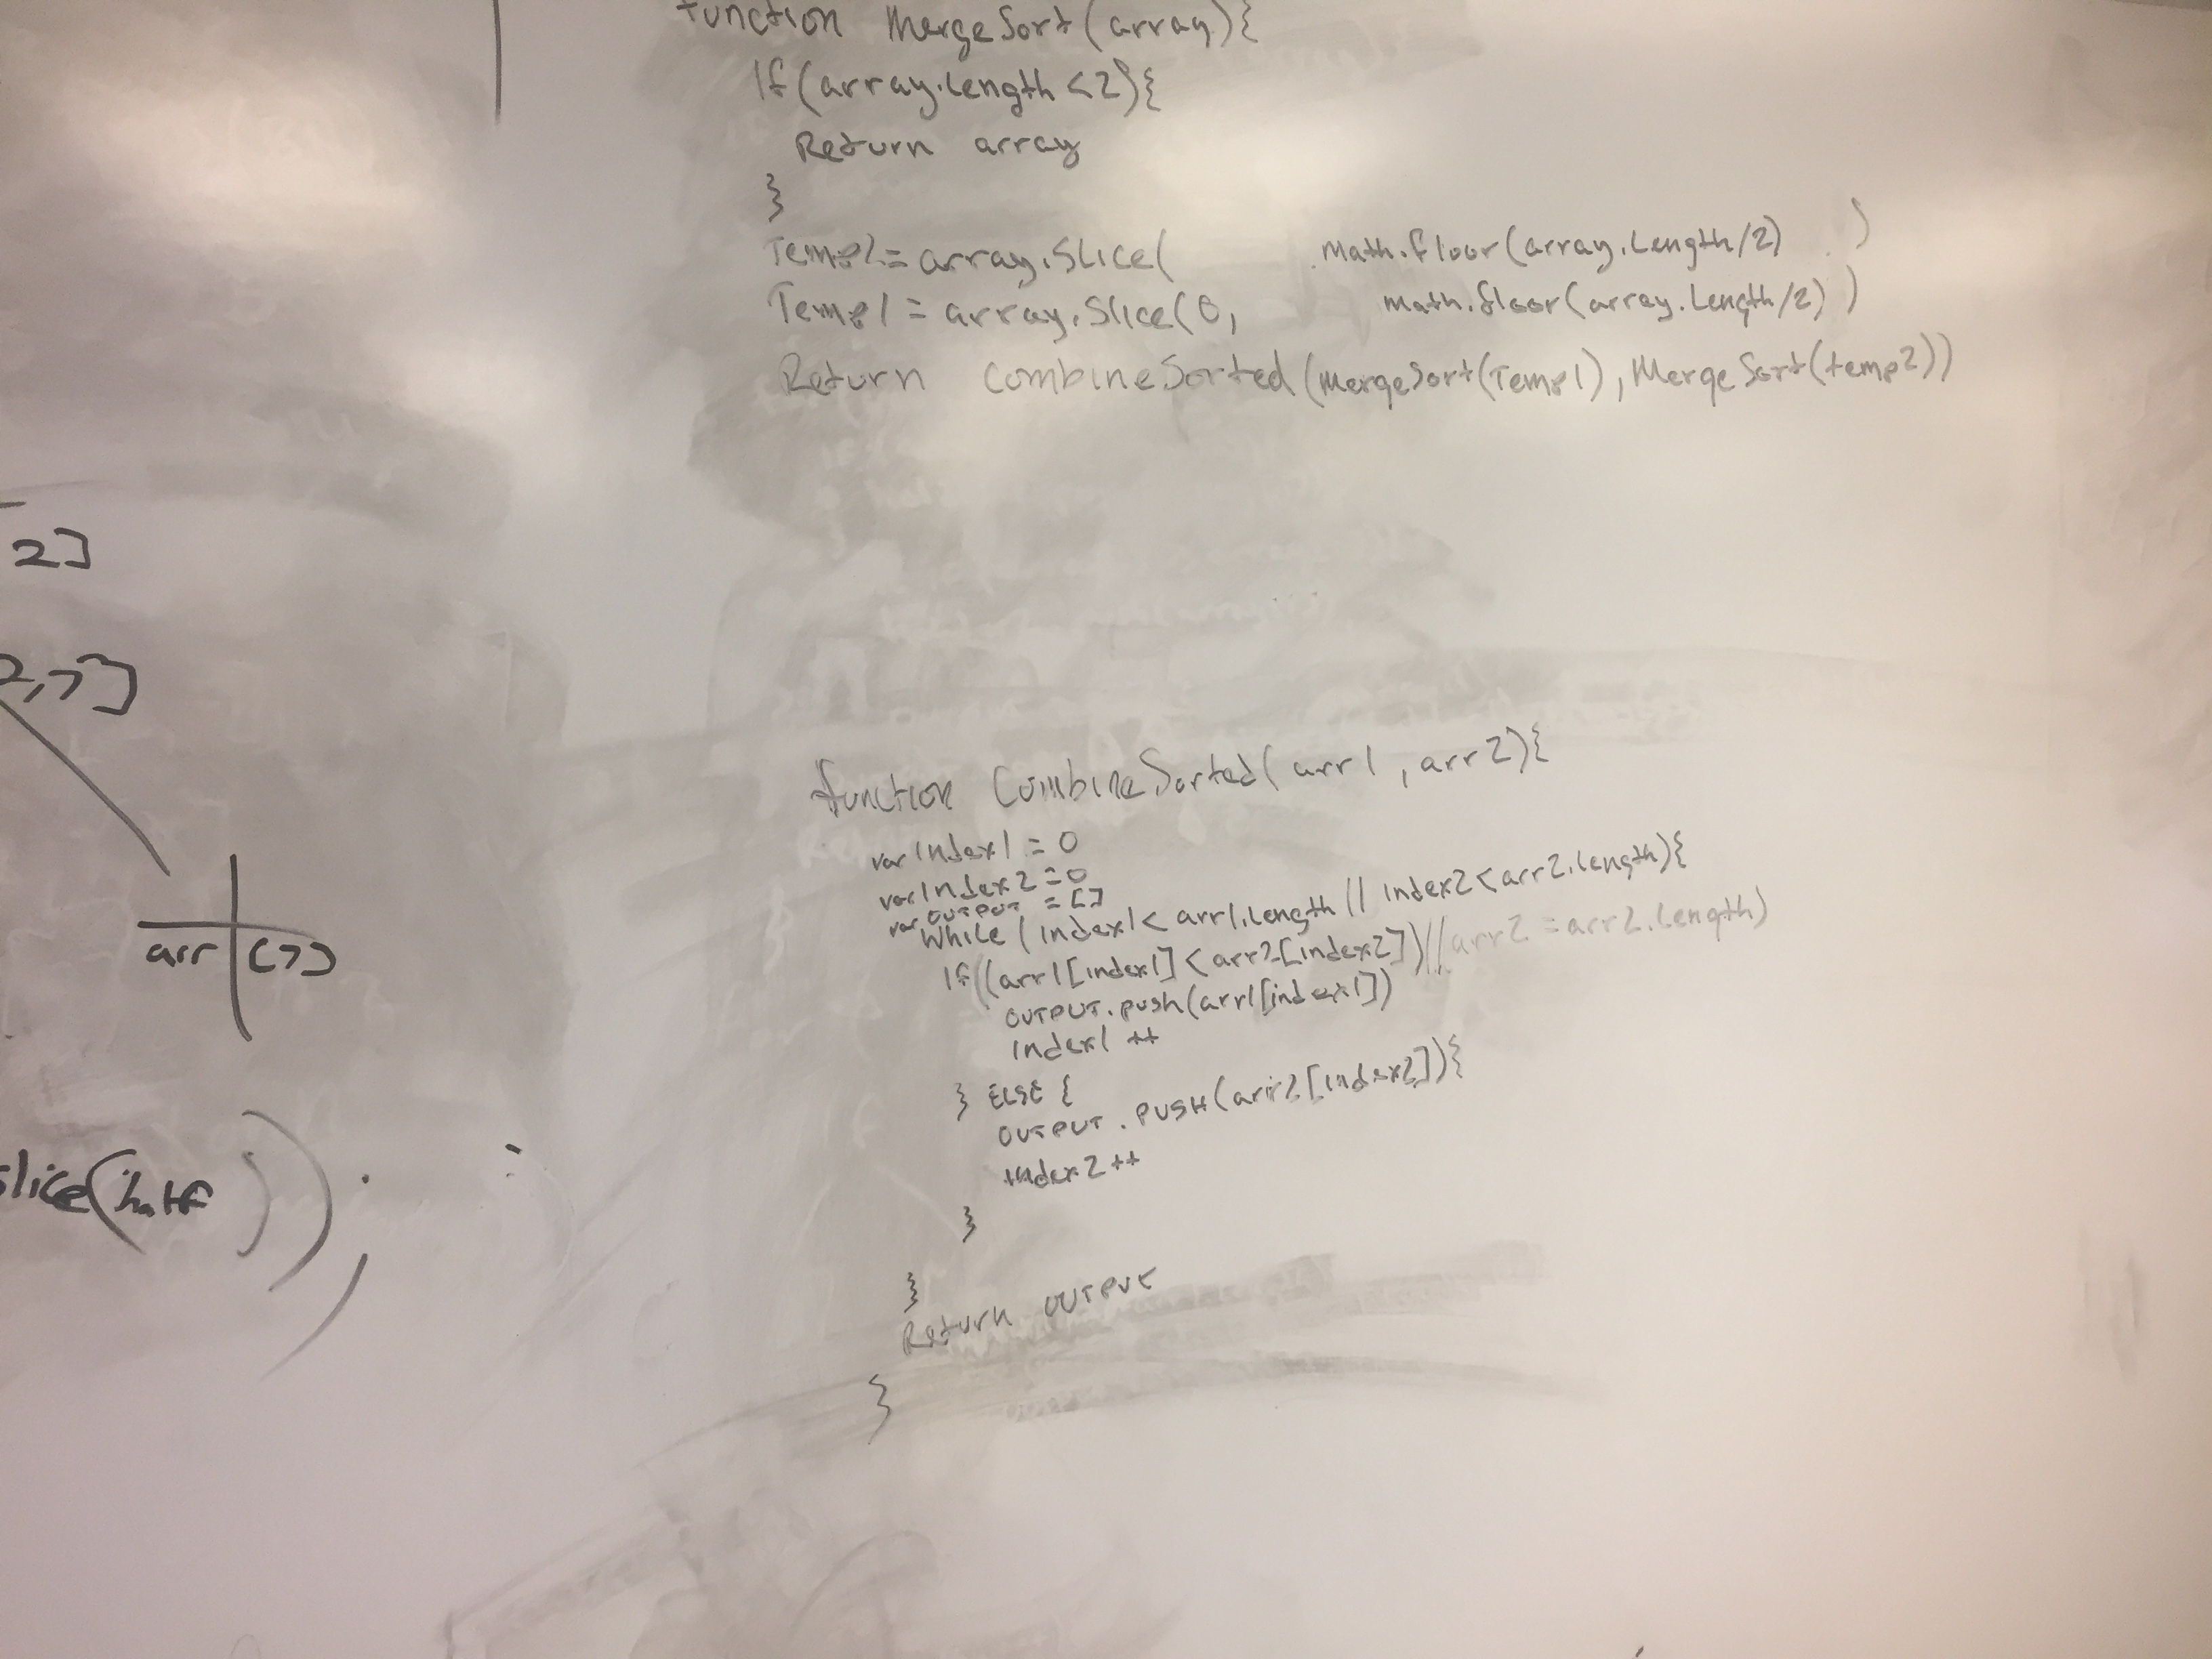 function MergeSort(array){
If(array.length <2){
Return array
}
Temp1= array.slice( math.floor(array.length/2) )
Temp1 = array.slice(0, math.floor(array.length/2))
Return combineSorted(mergeSort(Temp1), MergeSort(temp2))
2]
2,7]
arr (7)
slice(half ));
function CombineSorted(arr1, arr2){
var Index1 = 0
var Index2 = 0
var OUTPUT = []
While (index1< arr1.length || index2<arr2.length){
If((arr1[index1] < arr2[index2])||arr2 =arr2.length)
OUTPUT.push(arr1[index1])
Index1 ++
} ELSE {
OUTPUT.PUSH(arr2[index2]){
Index2++
}
}
Return OUTPUT
}